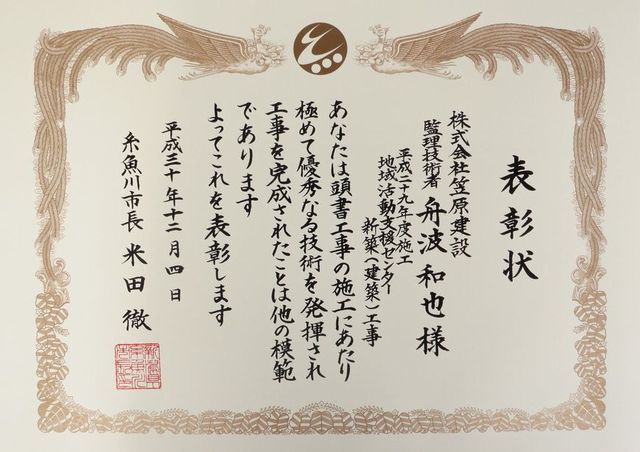 表彰状
株式会社笠原建設
監理技術者 舟波和也様
平成二十九年度施工
地域活動支援センター
新築(建築)工事
あなたは頭書工事の施工にあたり
極めて優秀なる技術を発揮され
工事を完成されたことは他の模範
であります
よってこれを表彰します
平成三十年十二月四日
糸魚川市長 米田徹